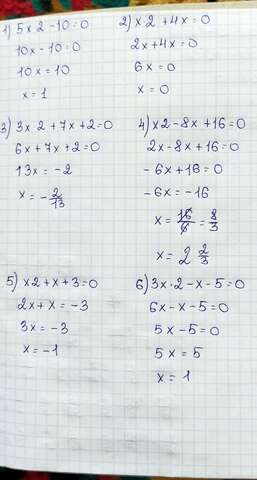 1) 5x2-10=0
10x-10=0
10x=10
x=1
2) x·2+4x=0
2x+4x=0
6x=0
x=0
3) 3x2+7x+2=0
6x+7x+2=0
13x=-2
x=-2/13
4) x2-8x+16=0
2x-8x+16=0
-6x+16=0
-6x=-16
x=16/6=8/3
x=2 2/3
5) x2+x+3=0
2x+x=-3
3x=-3
x=-1
6) 3x·2-x-5=0
6x-x-5=0
5x-5=0
5x=5
x=1